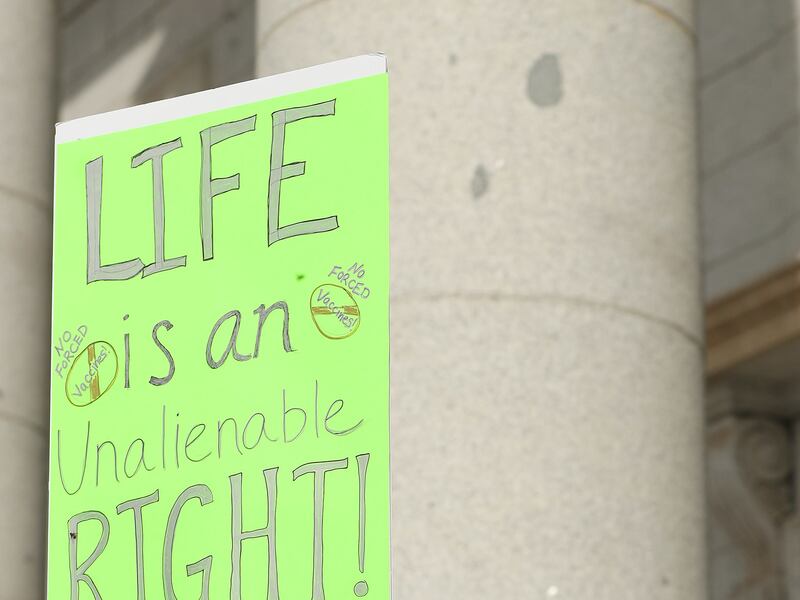 LIFE
is an
NO
FORCED
Vaccines!
NO
FORCED
Vaccines!
Unalienable
RIGHT!